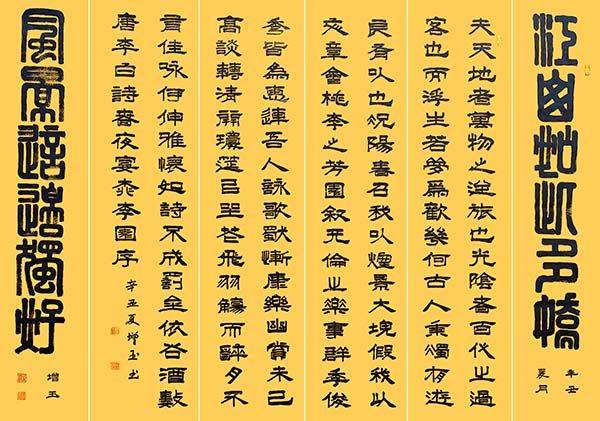 江山如此多嬌
辛丑
夏月
夫天地者萬物之逆旅也光陰者百代之過
客也而浮生若夢為歡幾何古人秉燭夜遊
良有以也況陽春召我以煙景大塊假我以
文章會桃李之芳園敘天倫之樂事群季俊
秀皆為惠連吾人詠歌獨慚康樂幽賞未已
高談轉清開瓊筵以坐花飛羽觴而醉月不
有佳咏何伸雅懷如詩不成罰金依谷酒數
唐李白詩春夜宴桃李園序
辛丑夏增玉书
風景這邊獨好
增玉